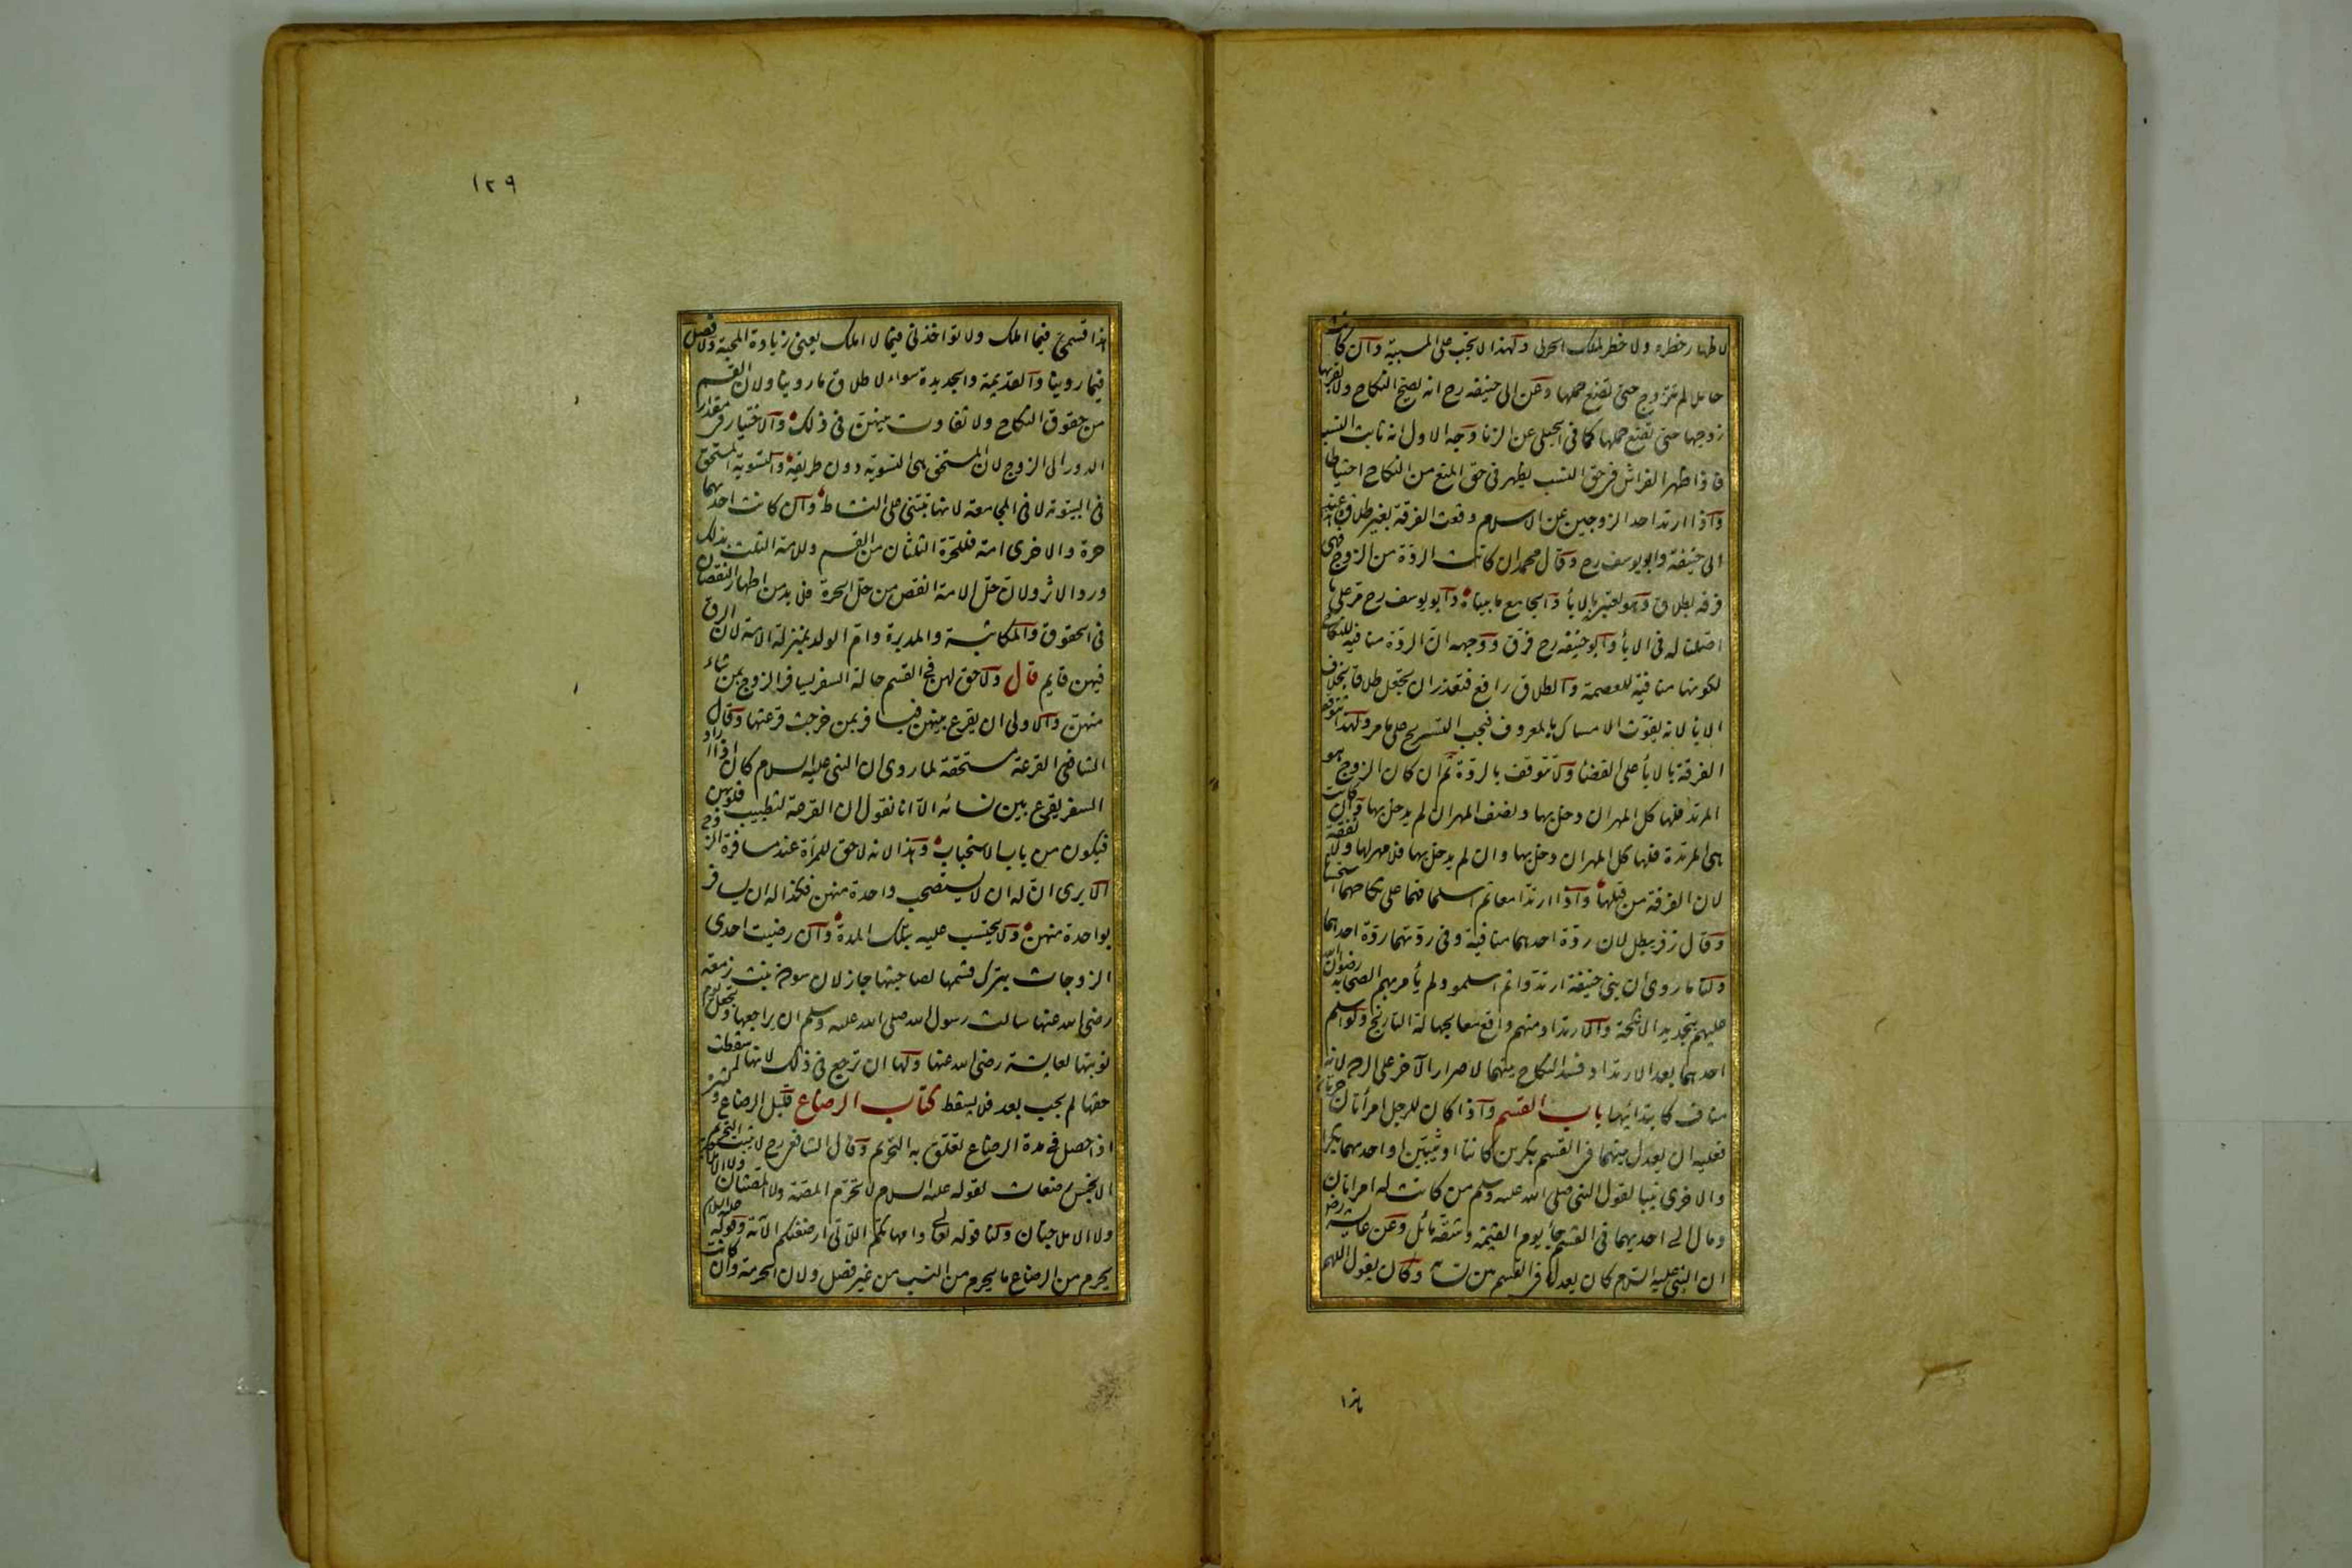 لاظهار خطره ولا خطر لملك الحربى ولهذا لا تجب على المسبية وان كانت
حاملا لم تتزوج حتى تضع حملها وعن ابى حنيفه رح انه يصح النكاح ولا يقربها
زوجها حتى تضع حملها كما فى الحبلى عن الزنا وجه الاول انه ثابت النسب
فاذا ظهر الفراش فى حق النسب يظهر فى حق المنع من النكاح احتياطا
واذا ارتد احد الزوجين عن الاسلام وقعت الفرقة بغير طلاق عند
ابى حنيفة وابو يوسف رح وقال محمد ان كانت الردة من الزوج فهى
فرقه بطلاق وهو يعتبر بالاباء والجامع ما بيناه وابو يوسف رح مر على ما
اصلنا له فى الاباء وابو حنيفه رح فرق ووجهه ان الردة منافية للنكاح
لكونها منافية للعصمة والطلاق رافع فتعذر ان يجعل طلاقا بخلاف
الاباء لانه يفوت الامساك بالمعروف فيجب التسريح على ما مر ولهذا تتوقف
الفرقة بالاباء على القضاء ولا تتوقف بالردة ثم ان كان الزوج هو
المرتد فلها كل المهر ان دخل بها ونصف المهر ان لم يدخل بها وان كانت
هى المرتدة فلها كل المهر ان دخل بها وان لم يدخل بها فلا مهر لها ولا نفقة
لان الفرقة من قبلها واذا ارتدا معا ثم اسلما فهما على نكاحهما استحسانا
وقال زفر يبطل لان ردة احدهما منافية وفى ردتهما ردة احدهما
ولنا ما روى ان بنى حنيفة ارتدوا ثم اسلموا ولم يأمرهم الصحابة رضوان الله
عليهم بتجديد الانكحة والارتداد منهم واقع معا لجهالة التاريخ ولو اسلم
احدهما بعد الارتداد فسد النكاح بينهما لاصرار الآخر على الردة لانه
مناف كابتدائها باب القسم واذا كان للرجل امرأتان حرتان
فعليه ان يعدل بينهما فى القسم بكرين كانتا او ثيبين او احديهما بكرا
والاخرى ثيبا لقول النبى صلى الله عليه وسلم من كانت له امرأتان
ومال الى احديهما فى القسم جاء يوم القيمة وشقه مائل وعن عايشة رض
ان النبى عليه السلام كان يعدل فى القسم بين نسائه وكان يقول اللهم
هذا
١٢٩
هذا قسمى فيما املك ولا تواخذنى فيما لا املك يعنى زيادة المحبة ولا فصل
فيما روينا والقديمة والجديدة سواء لاطلاق ما روينا ولان القسم
من حقوق النكاح ولا تفاوت بينهن فى ذلك والاختيار فى مقدار
الدور الى الزوج لان المستحق هى التسوية دون طريقه والتسوية المستحق
فى البيتوتة لا فى المجامعة لانها تبتنى على النشاط وان كانت احديهما
حرة والاخرى امة فللحرة الثلثان من القسم وللامة الثلث بذلك
ورد الاثر ولان حل الامة انقص من حل الحرة فلا بد من اظهار النقصان
فى الحقوق والمكاتبة والمدبرة وام الولد بمنزلة الامة لان الرق
فيهن قايم قال ولا حق لهن فى القسم حالة السفر يسافر الزوج بمن شاء
منهن والاولى ان يقرع بينهن فيسافر بمن خرجت قرعتها وقال
الشافعى القرعة مستحقة لما روى ان النبى عليه السلام كان اذا اراد
السفر يقرع بين نسائه الا انا نقول ان القرعة لتطييب قلوبهن
فيكون من باب الاستحباب وهذا لانه لا حق للمرأة عند مسافرة الزوج
الا يرى ان له ان لا يستصحب واحدة منهن فكذا له ان يسافر
بواحدة منهن ولا يحتسب عليه بتلك المدة وان رضيت احدى
الزوجات بترك قسمها لصاحبتها جاز لان سودة بنت زمعة
رضى الله عنها سالت رسول الله صلى الله عليه وسلم ان يراجعها وتجعل يوم
نوبتها لعايشة رضى الله عنها ولها ان ترجع فى ذلك لانها اسقطت
حقها لم يجب بعد فلا يسقط كتاب الرضاع قليل الرضاع وكثيره
اذا حصل فى مدة الرضاع تعلق به التحريم وقال الشافعى رح لا يثبت التحريم
الا بخمس رضعات لقوله عليه السلام لا تحرم المصة ولا المصتان ولا الاملاجة
ولا الاملاجتان ولنا قوله تعالى وامهاتكم اللاتى ارضعنكم الآية وقوله عليه السلام
يحرم من الرضاع ما يحرم من النسب من غير فصل ولان الحرمة وان كانت